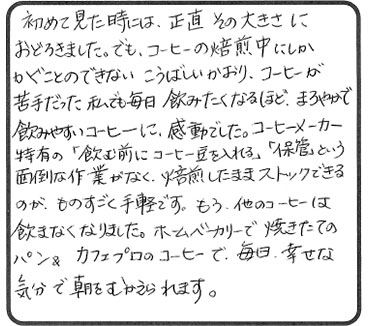 初めて見た時には、正直その大きさに
おどろきました。でも、コーヒーの焙煎中にしか
かぐことのできない こうばしいかおり、コーヒーが
苦手だった私でも毎日 飲みたくなるほど、まろやかで
飲みやすいコーヒーに、感動でした。コーヒーメーカー
特有の「飲む前にコーヒー豆を入れる」「保管」という
面倒な作業がなく、焙煎したままストックできる
のが、ものすごく手軽です。もう、他のコーヒーは
飲まなくなりました。ホームベーカリーで 焼きたての
パン& カフェプロのコーヒーで、毎日、幸せな
気分で朝をむかえられます。